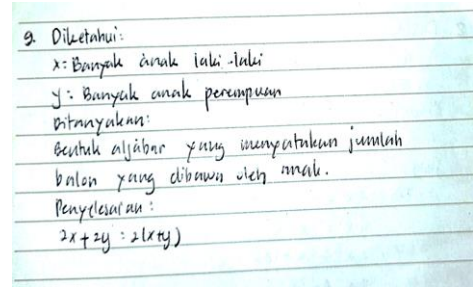 9. Diketahui:
x: Banyak anak laki-laki
y: Banyak anak perempuan
Ditanyakan:
Bentuk aljabar yang menyatakan jumlah
balon yang dibawa oleh anak.
Penyelesaian:
2x + 2y : 2(x+y)